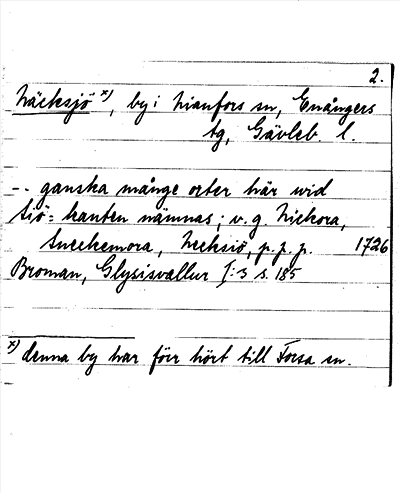 2.
Näcksjö x), by i Nianfors sn, Enångers
tg, Gävleb. l.
-- ganska månge orter här wid
siö=kanten nämnas; v. g. Niehora,
Sneckemora, Necksiö, p. p. p. 1726
Broman, Glysisvallur I:3 s. 185
x) denna by har förr hört till Forsa sn.